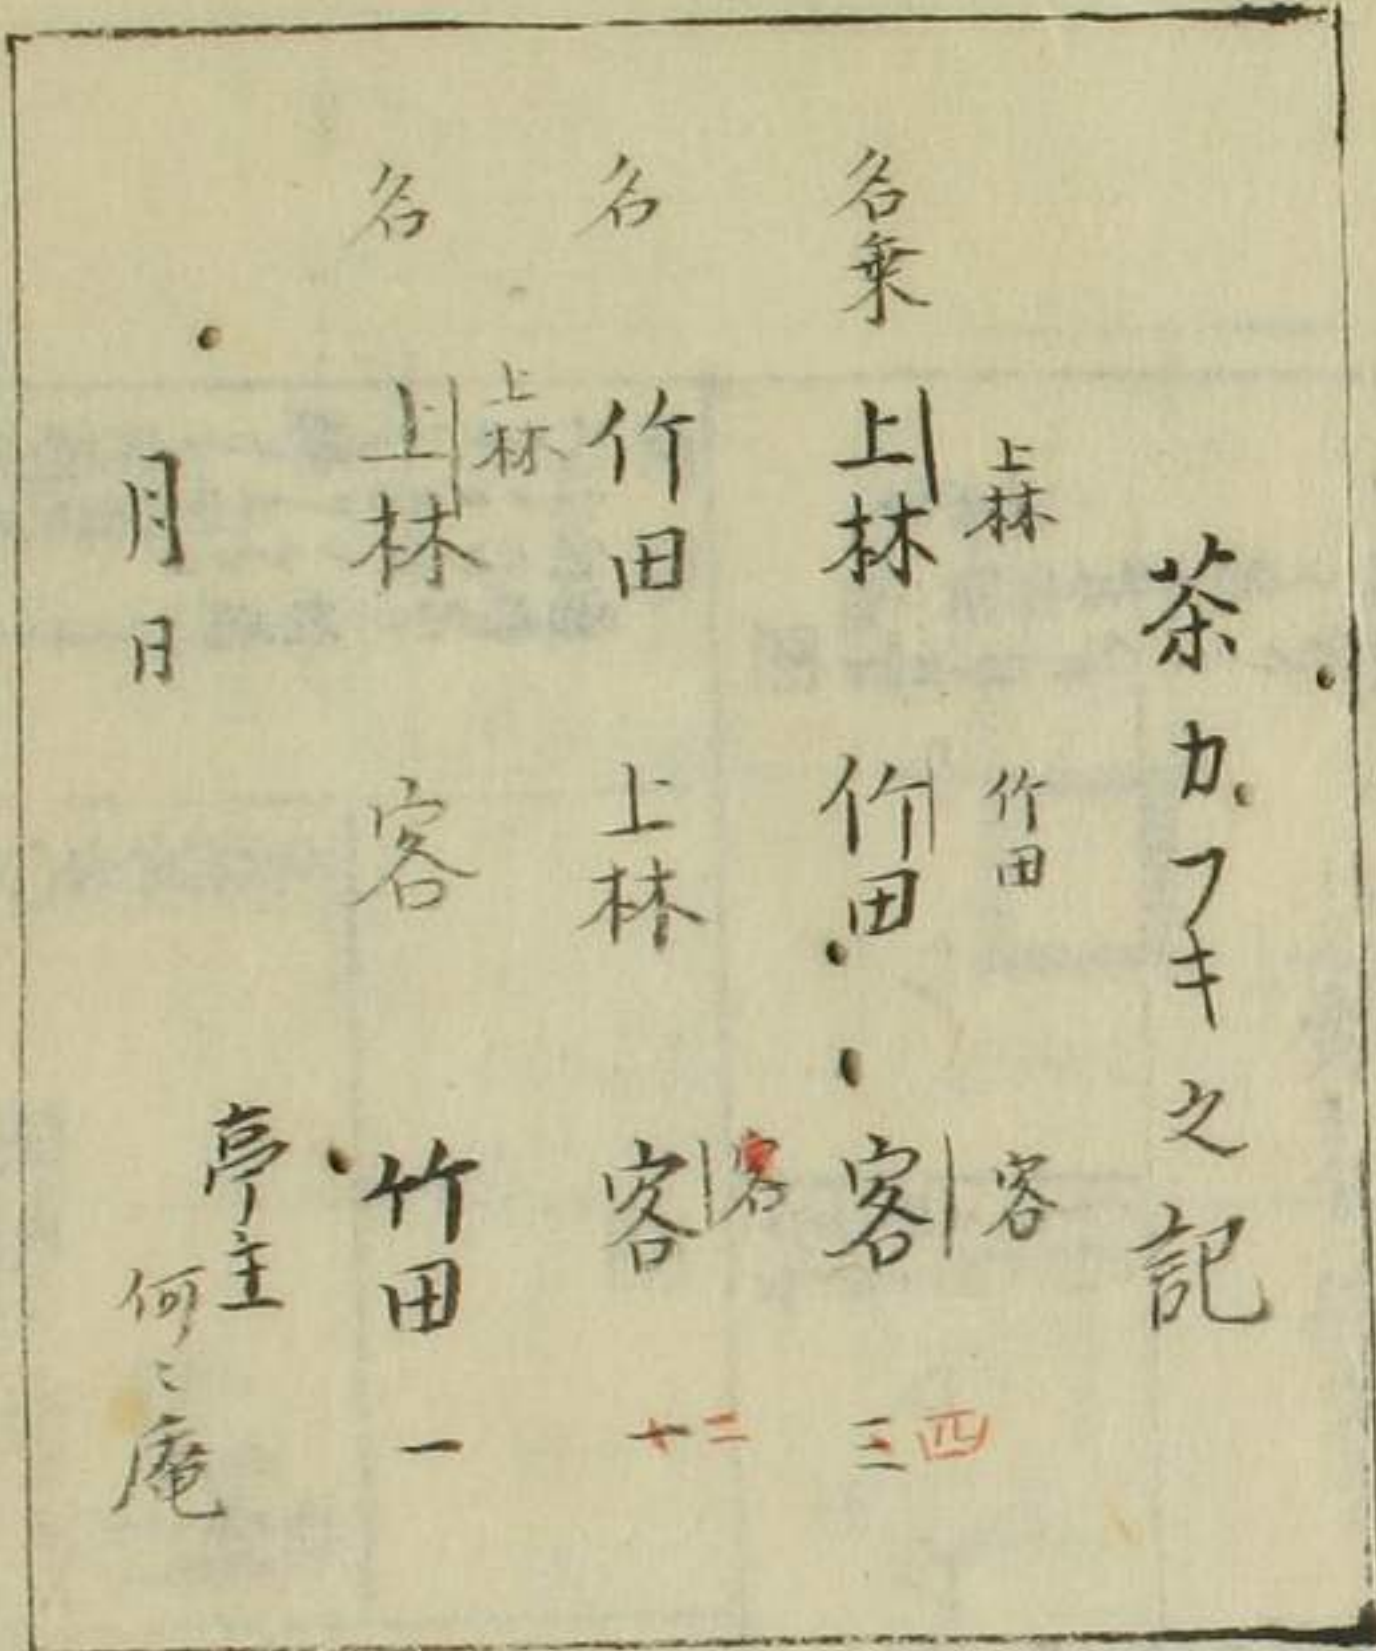 茶カフキ之記
上林 竹田 客
名乗 上林 竹田 客 三 四
客
名 竹田 上林 客 一 二
上林
名 上林 客 竹田 一
月日 亭主
何〻庵